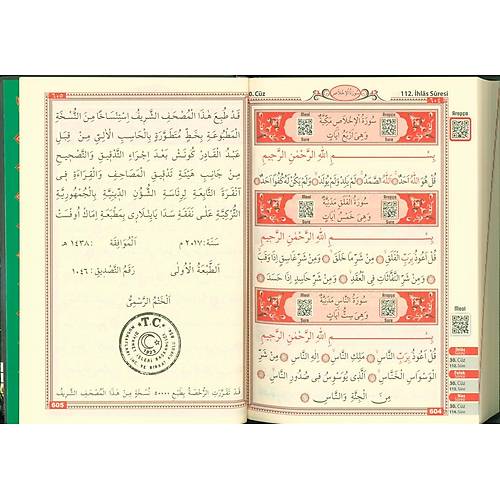 112. İhlâs Sûresi
٦٠٤
سُورَةُ الْإِخْلَاصِ
Arapça
Meal
Sure
Meal
Arapça
Sure
سُورَةُ الْإِخْلَاصِ مَكِّيَّةٌ
وَهِيَ أَرْبَعُ آيَاتٍ
بِسْمِ اللّٰهِ الرَّحْمٰنِ الرَّحِيمِ
قُلْ هُوَ اللّٰهُ أَحَدٌ اَللّٰهُ الصَّمَدُ لَمْ يَلِدْ وَلَمْ يُولَدْ وَلَمْ يَكُنْ لَهُ كُفُوًا أَحَدٌ
Meal
Arapça
Sure
سُورَةُ الْفَلَقِ مَدَنِيَّةٌ
وَهِيَ خَمْسُ آيَاتٍ
بِسْمِ اللّٰهِ الرَّحْمٰنِ الرَّحِيمِ
قُلْ أَعُوذُ بِرَبِّ الْفَلَقِ مِنْ شَرِّ مَا خَلَقَ وَمِنْ شَرِّ غَاسِقٍ إِذَا وَقَبَ
وَمِنْ شَرِّ النَّفَّاثَاتِ فِي الْعُقَدِ وَمِنْ شَرِّ حَاسِدٍ إِذَا حَسَدَ
Meal
Arapça
Sure
سُورَةُ النَّاسِ مَدَنِيَّةٌ
وَهِيَ سِتُّ آيَاتٍ
بِسْمِ اللّٰهِ الرَّحْمٰنِ الرَّحِيمِ
قُلْ أَعُوذُ بِرَبِّ النَّاسِ مَلِكِ النَّاسِ إِلٰهِ النَّاسِ مِنْ شَرِّ
الْوَسْوَاسِ الْخَنَّاسِ اَلَّذِي يُوَسْوِسُ فِي صُدُورِ النَّاسِ
مِنَ الْجِنَّةِ وَالنَّاسِ
604
İhlâs
30. Cüz
112. Sûre
Felak
30. Cüz
113. Sûre
Nas
30. Cüz
114. Sûre
0. Cüz
٦٠٥
قَدْ طُبِعَ هٰذَا الْمُصْحَفُ الشَّرِيفُ اِسْتِنْسَاخًا مِنَ النُّسْخَةِ
الْمَطْبُوعَةِ بِخَطٍّ مُتَطَوِّرَةٍ بِالْحَاسِبِ الْآلِيِّ مِنْ قِبَلِ
عَبْدُ الْقَادِرْ كُونَشْ بَعْدَ إِجْرَاءِ التَّدْقِيقِ وَالتَّصْحِيحِ
مِنْ جَانِبِ هَيْئَةِ تَدْقِيقِ الْمَصَاحِفِ وَالْقِرَاءَةِ فِي
أَنْقَرَةَ التَّابِعَةِ لِرِئَاسَةِ الشُّؤُنِ الدِّينِيَّةِ بِالْجُمْهُورِيَّةِ
التُّرْكِيَّةِ عَلَى نَفَقَةِ سَدَا يَايِنْلَارِى بِمَطْبَعَةِ إِمَاكْ أُوفْسَتْ
سَنَةَ: ٢٠١٧ م اَلْمُوَافِقَةَ: ١٤٣٨ هـ
اَلطَّبْعَةُ الْأُولٰى رَقْمُ التَّصْدِيقِ: ١٠٤٦
اَلْخَتْمُ الرَّسْمِيُّ
T.C.
1923
قَدْ تَقَرَّرَتِ الرُّخْصَةُ بِطَبْعِ ٥٠٠٠٠ نُسْخَةٍ مِنْ هٰذَا الْمُصْحَفِ الشَّرِيفِ
605